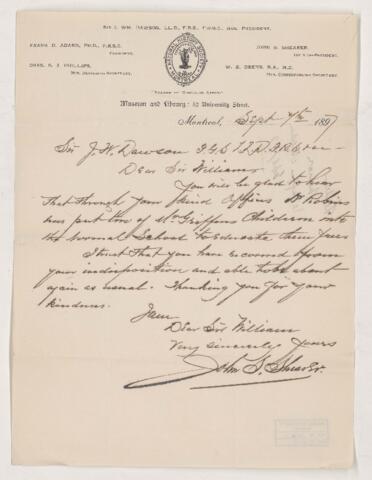 SIR J. WM. DAWSON, LL.D., F.R.S., F.R.S.C., HON. PRESIDENT.
FRANK D. ADAMS, PH.D., F.R.S.C.
PRESIDENT.
JOHN S. SHEARER,
1ST VICE-PRESIDENT.
CHAS. S. J. PHILLIPS,
HON. RECORDING SECRETARY.
W. E. DEEKS, B.A., M.D.
HON. CORRESPONDING SECRETARY.
NATURAL HISTORY SOCIETY
Museum and Library: 32 University Street.
Montreal, Sept 7th 1897
Sir J. W. Dawson
Dear Sir William
You will be glad to hear
that through your kind offices Dr Robins
has put two of Mr Griffins Children into
the Normal School to Educate them free
I trust that you have recovered from
your indisposition and able to be about
again as usual. Thanking you for your
kindness.
I am
Dear Sir William
Very sincerely Yours
John S. Shearer